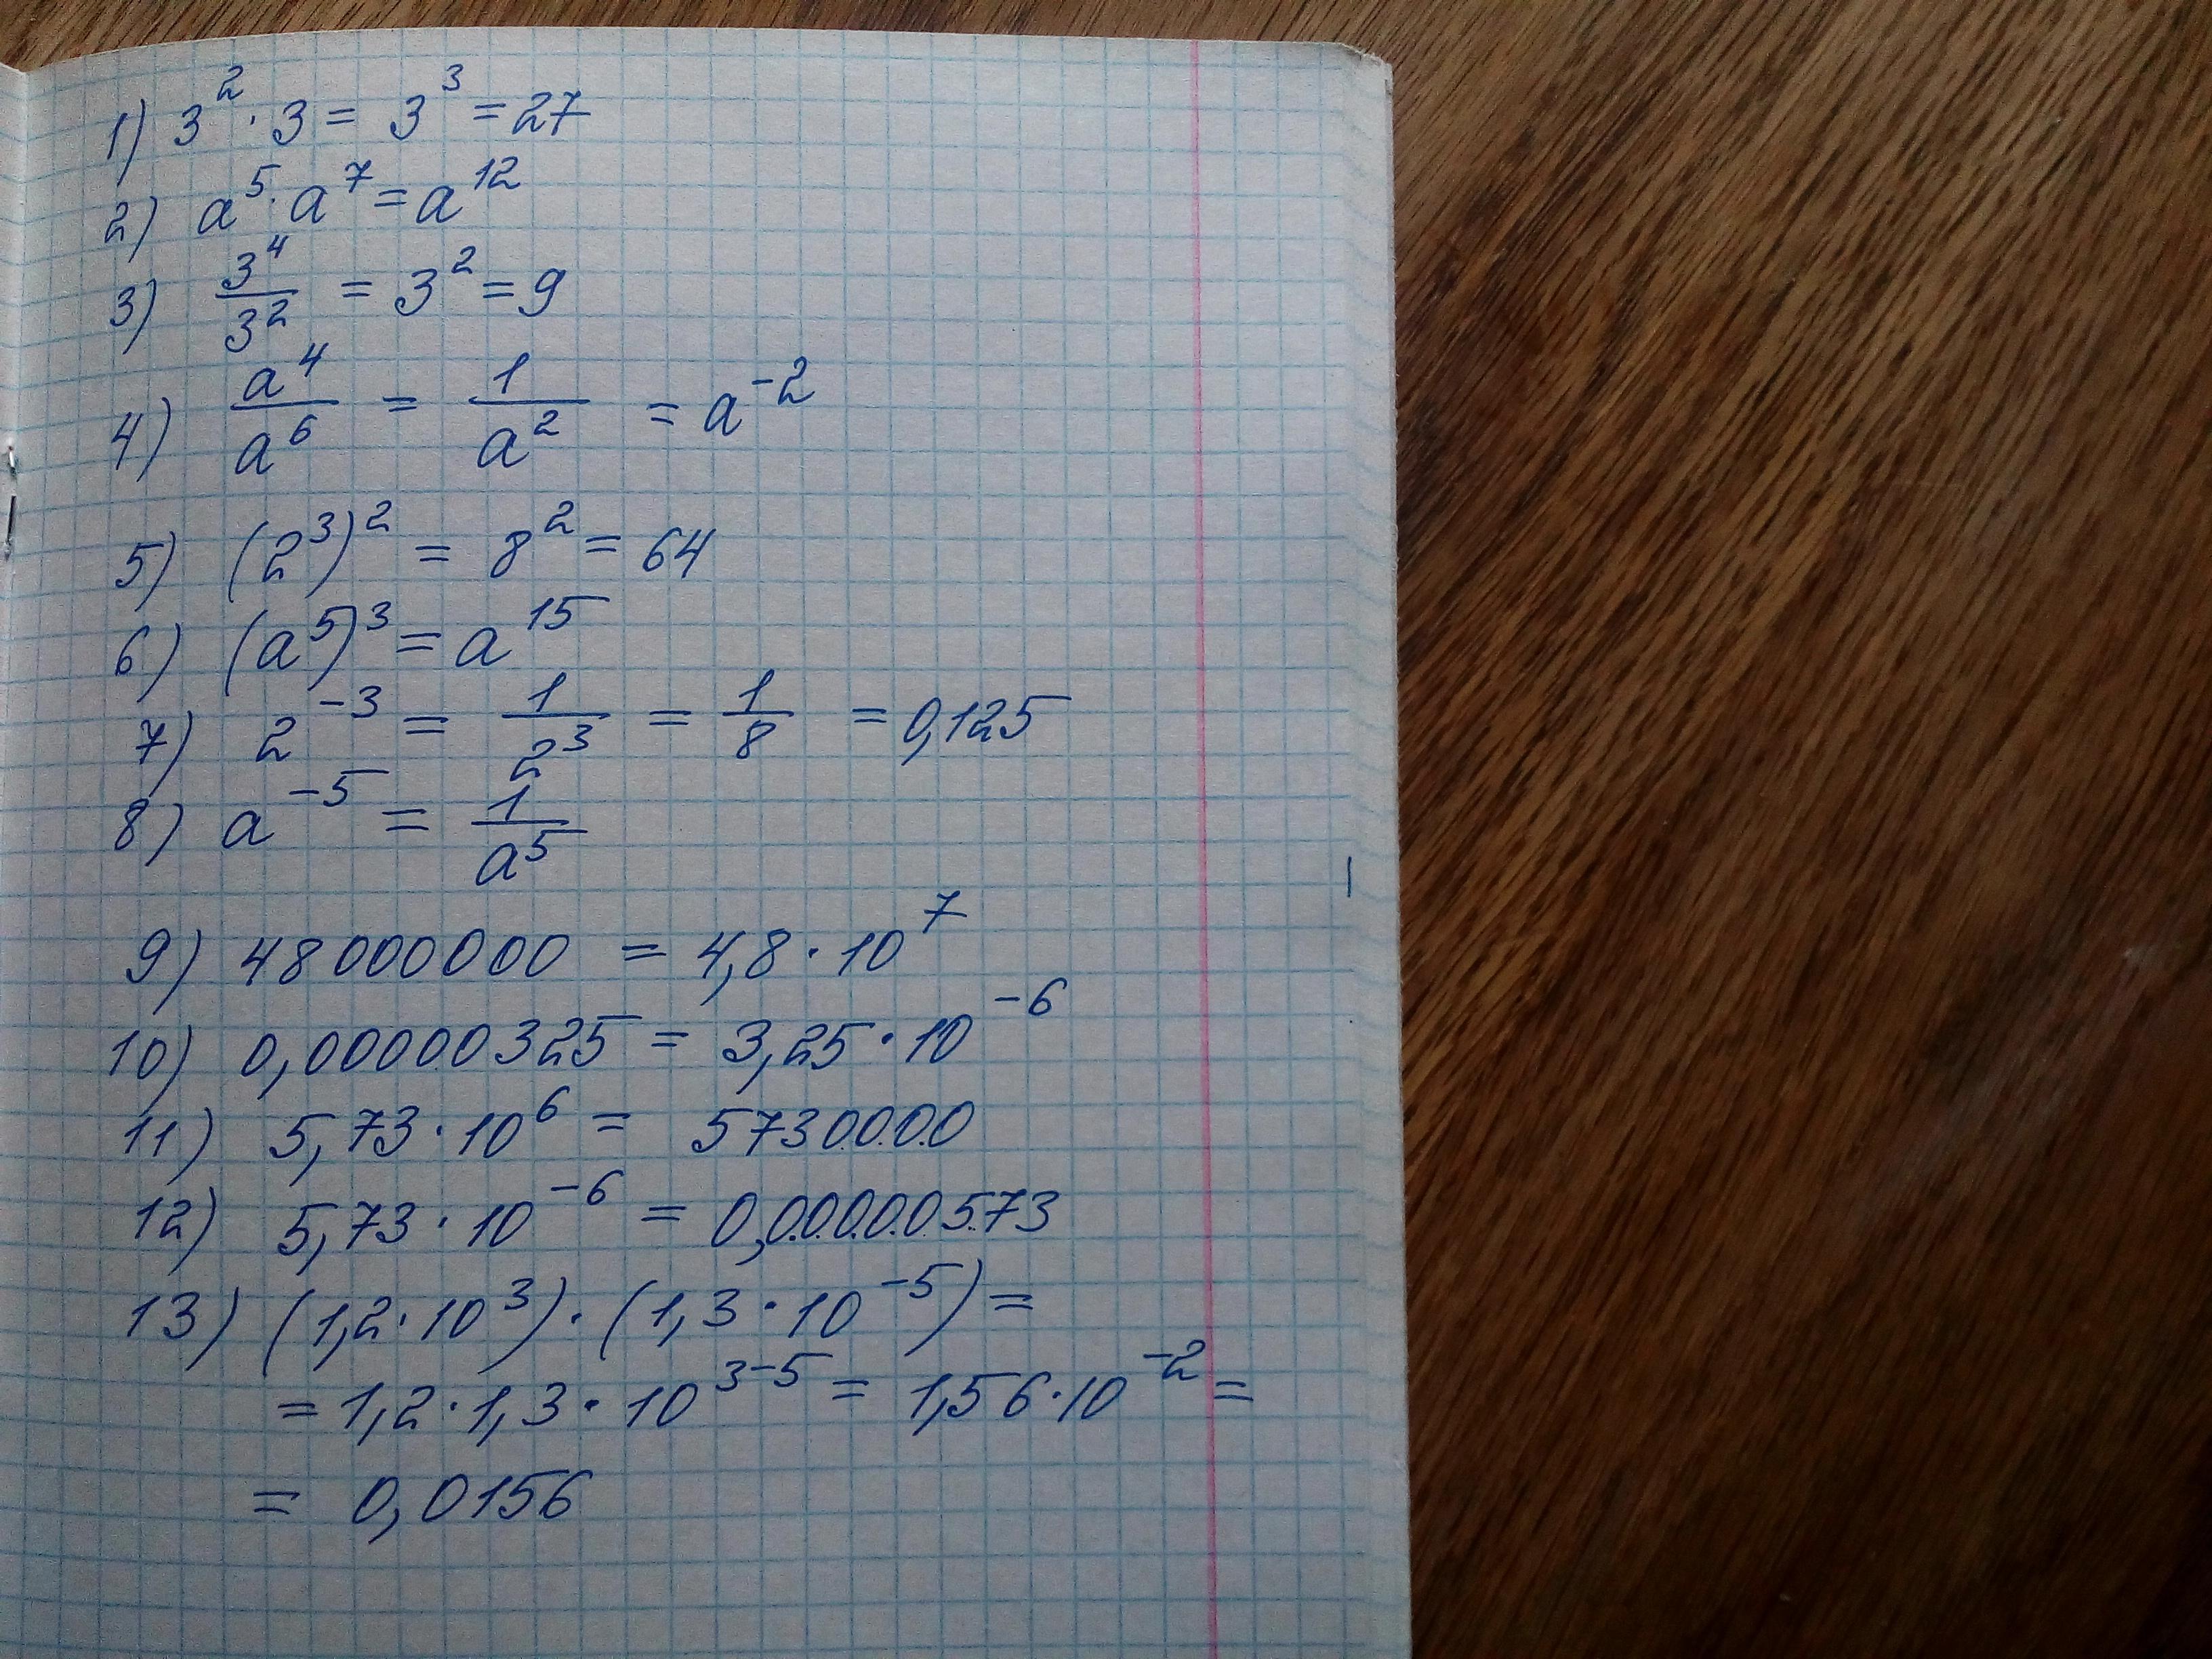 1) 3² · 3 = 3³ = 27
2) a⁵ · a⁷ = a¹²
3) 3⁴/3² = 3² = 9
4) a⁴/a⁶ = 1/a² = a⁻²
5) (2³)² = 8² = 64
6) (a⁵)³ = a¹⁵
7) 2⁻³ = 1/2³ = 1/8 = 0,125
8) a⁻⁵ = 1/a⁵
9) 48000000 = 4,8 · 10⁷
10) 0,00000325 = 3,25 · 10⁻⁶
11) 5,73 · 10⁶ = 5730000
12) 5,73 · 10⁻⁶ = 0,00000573
13) (1,2 · 10³) · (1,3 · 10⁻⁵) =
= 1,2 · 1,3 · 10³⁻⁵ = 1,56 · 10⁻² =
= 0,0156